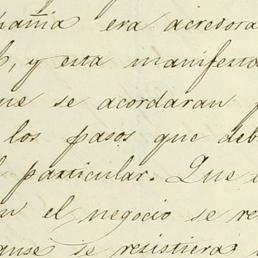 era acredora
, y esta manifesta
ue se acordaran
los pasos que deb
particular. Que
el negocio se re
se resistiera